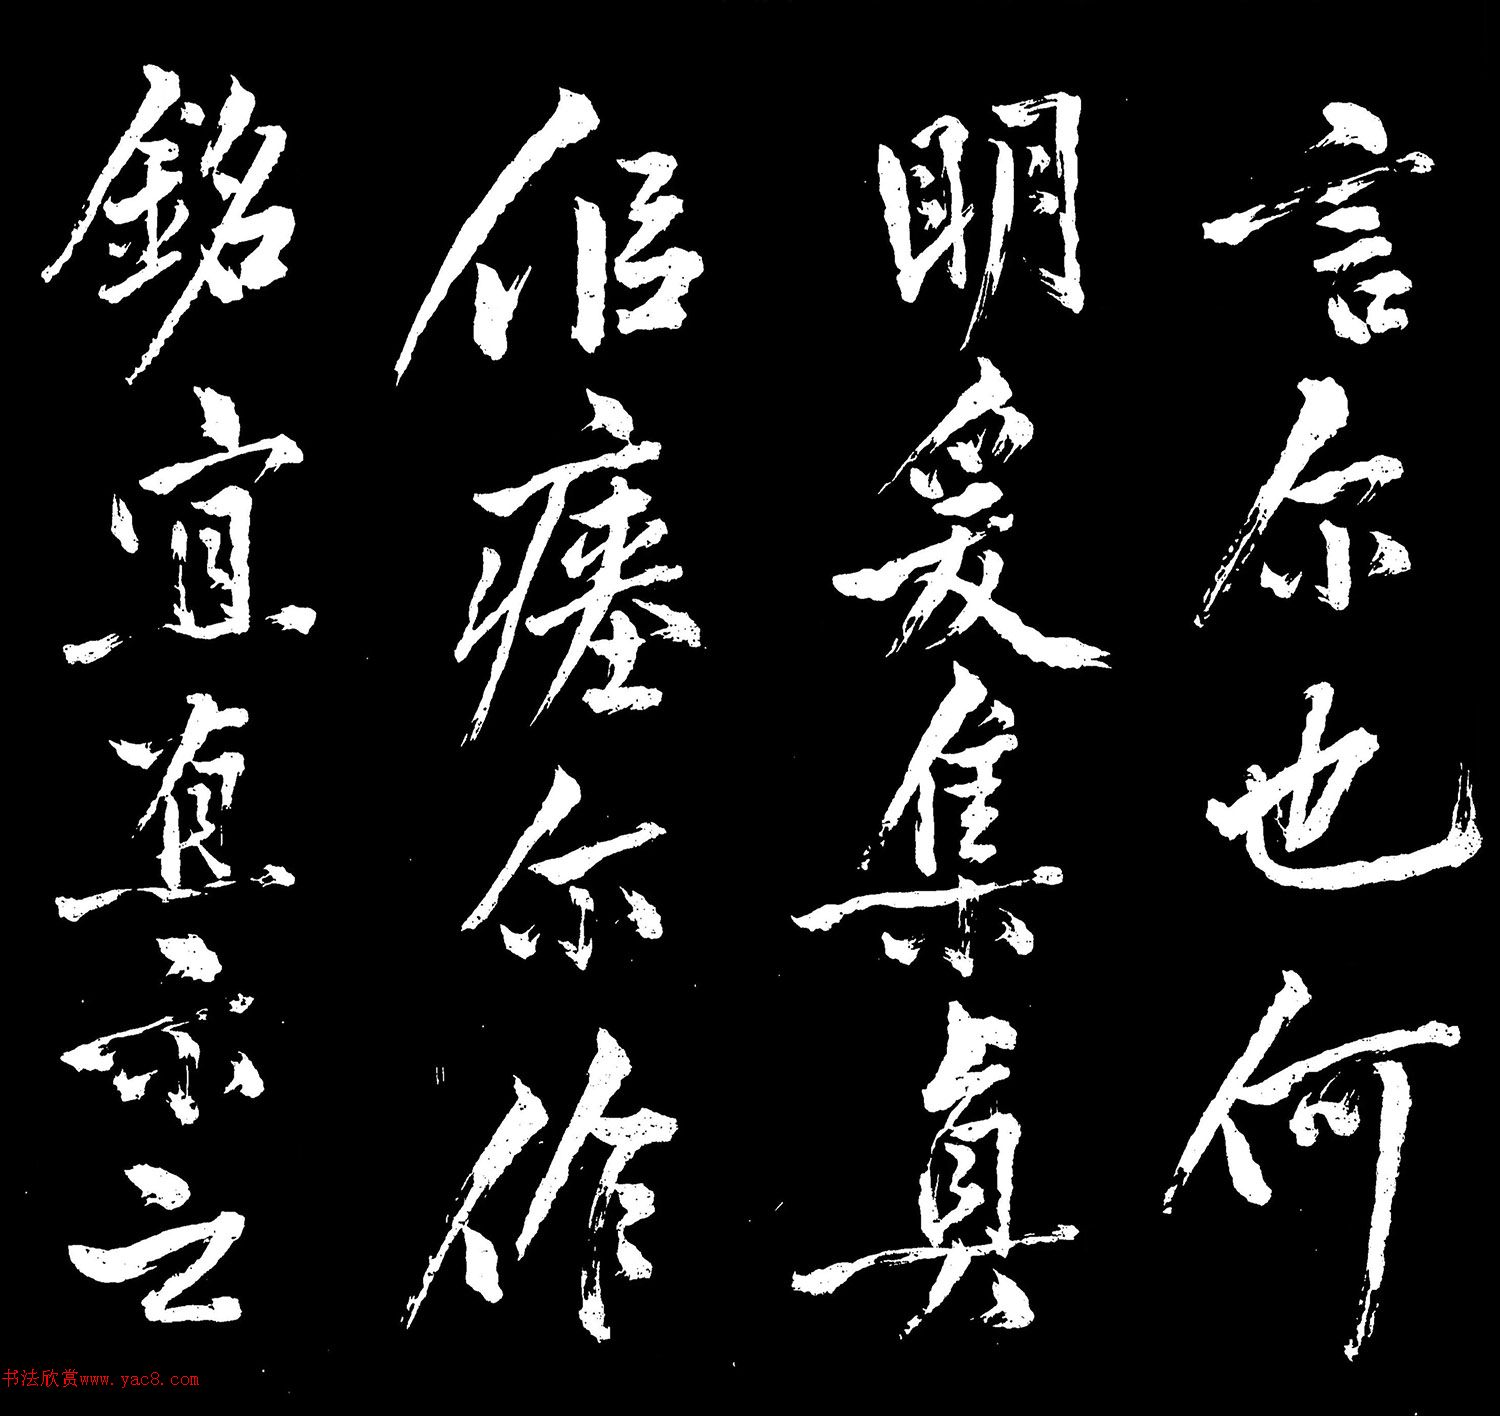 言尔也何
明爰集真
侶瘞尔作
銘宜直示之
书法欣赏www.yac8.com